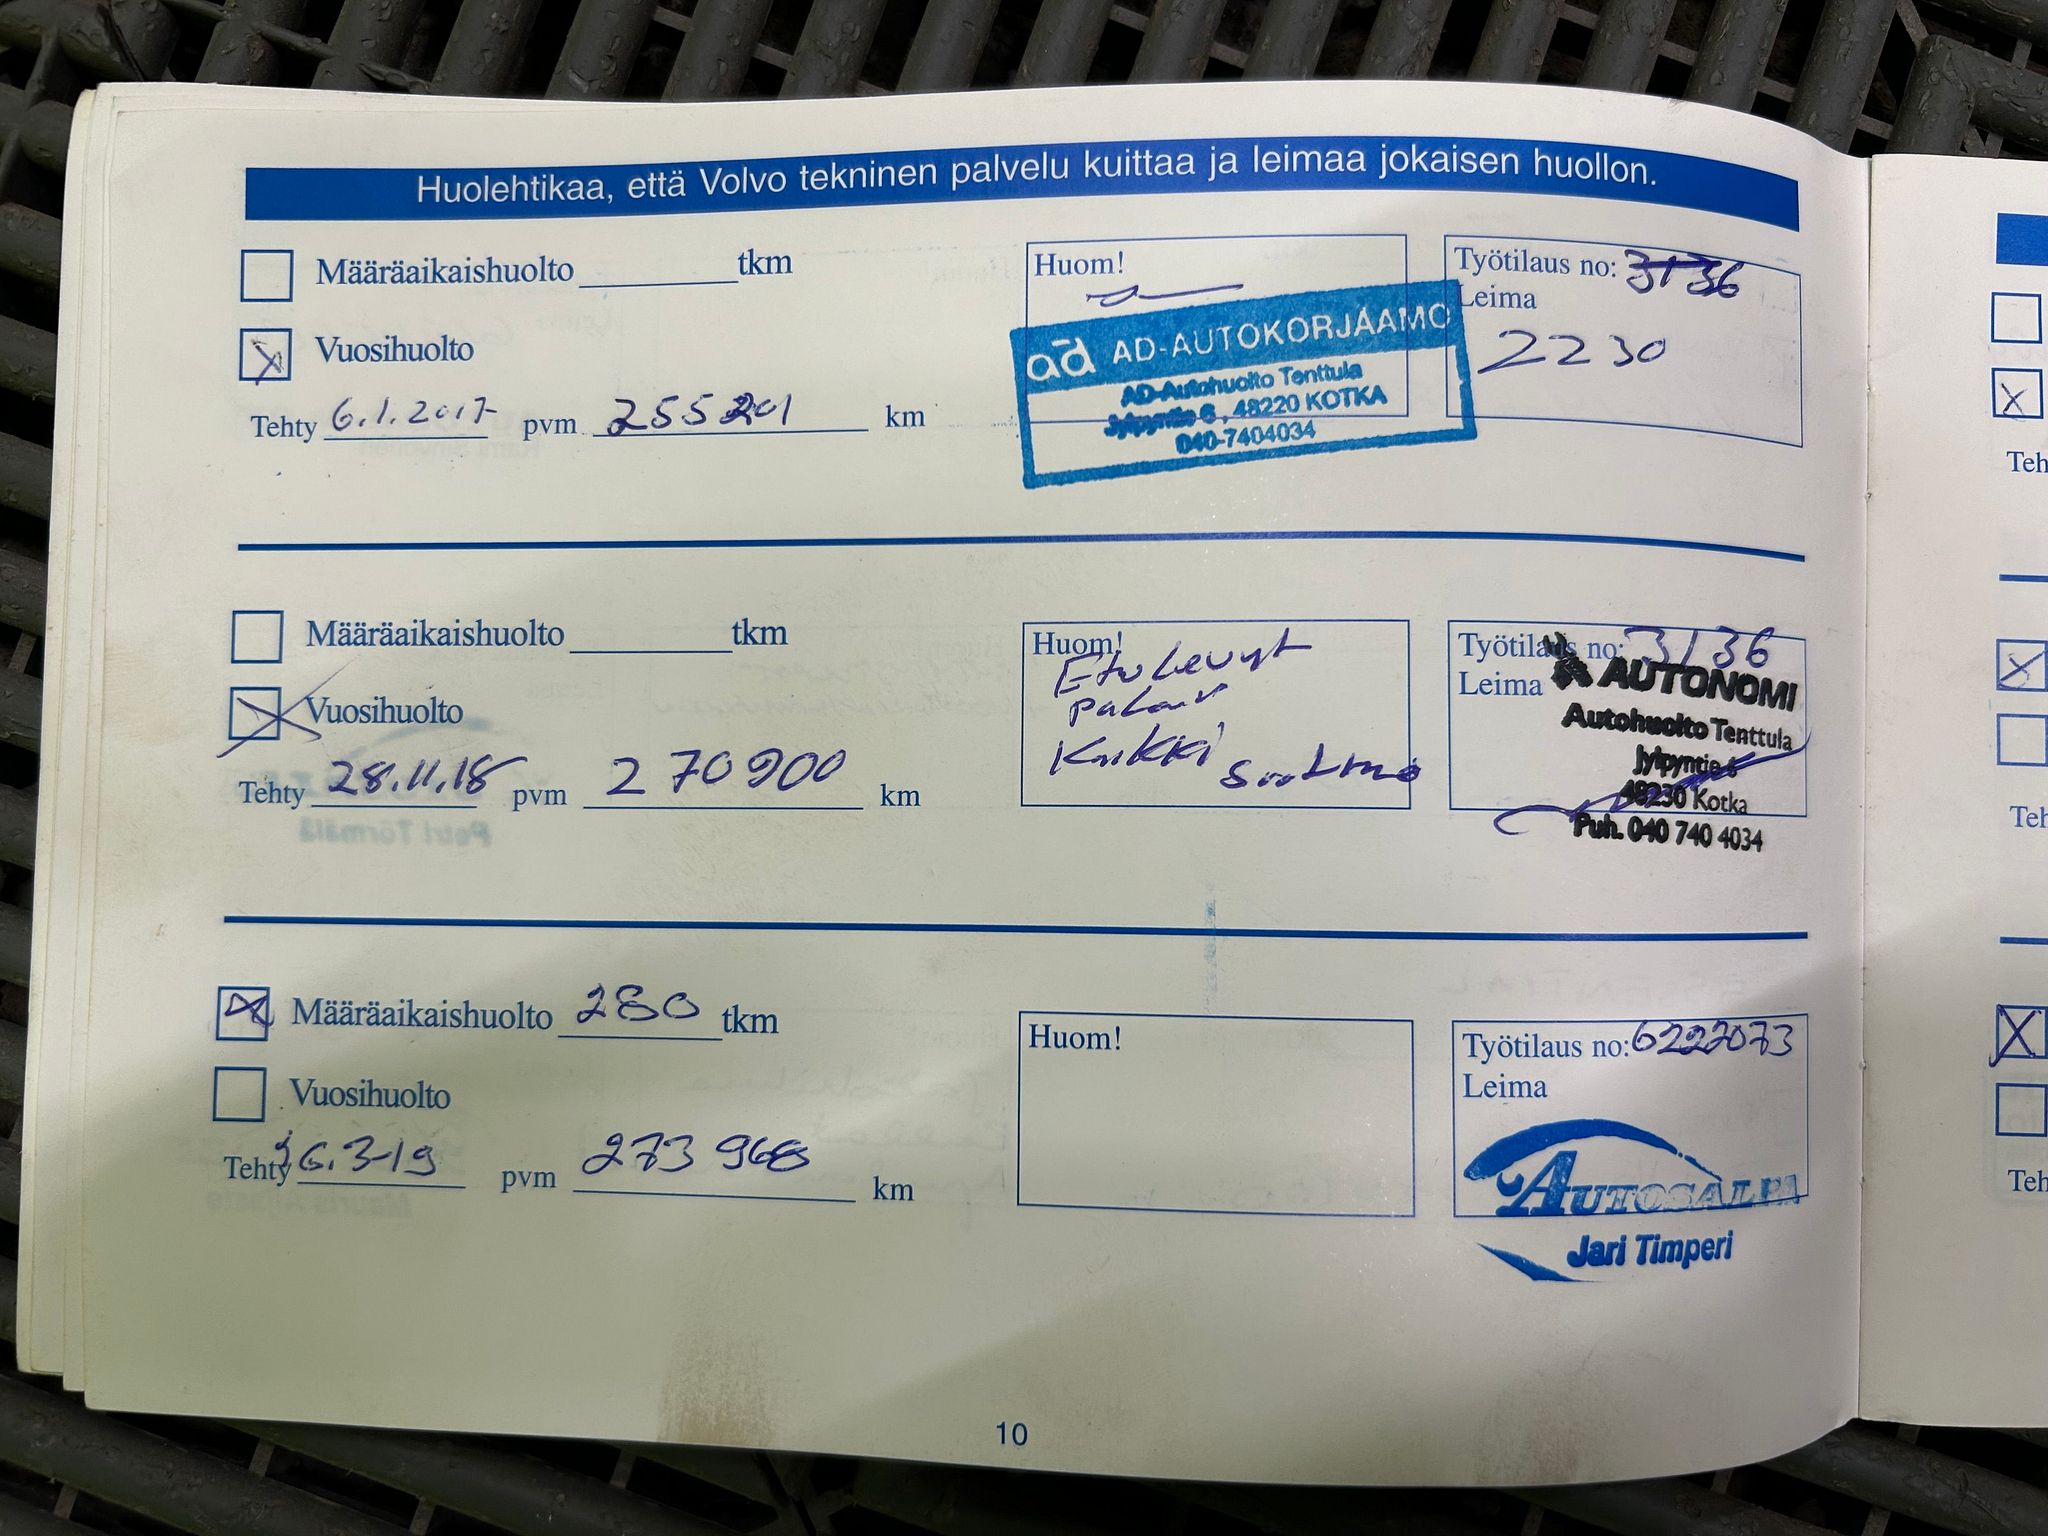 Huolehtikaa, että Volvo tekninen palvelu kuittaa ja leimaa jokaisen huollon.
Määräaikaishuolto tkm
Vuosihuolto
Tehty 6.1.2017 pvm 255201 km
Huom!
ad AD-AUTOKORJAAMO
AD-Autohuolto Tenttula
Jylpyntie 6, 48220 KOTKA
040-7404034
Työtilaus no: 3136
Leima
2230
Määräaikaishuolto tkm
Vuosihuolto
Tehty 28.11.18 pvm 270900 km
Huom!
Etulevyt
palat
Kaikki
Työtilaus no: 3136
Leima
AUTONOMI
Autohuolto Tenttula
Jylpyntie 6
48230 Kotka
Puh. 040 740 4034
Määräaikaishuolto 280 tkm
Vuosihuolto
Tehty 26.3-19 pvm 273968 km
Huom!
Työtilaus no: 6227073
Leima
AUTOSALPA
Jari Timperi
10
Teh
Teh
Teh